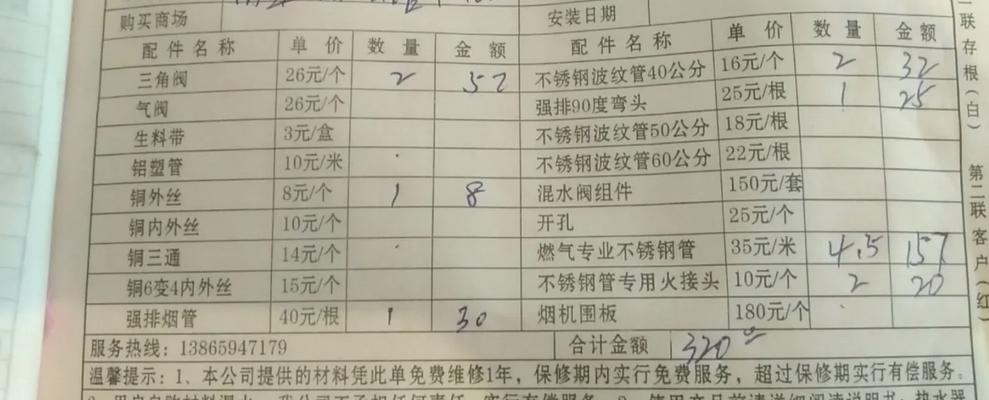 购买商场 安装日期
配件名称 单价 数量 金额 配件名称 单价 数量 金额
三角阀 26元/个 2 52 不锈钢波纹管40公分 16元/个 2 32
气阀 26元/个 强排90度弯头 25元/根 1 25
生料带 3元/盒 不锈钢波纹管50公分 18元/根
铝塑管 10元/米 不锈钢波纹管60公分 22元/根
铜外丝 8元/个 1 8 混水阀组件 150元/套
铜内外丝 10元/个 开孔 25元/个
铜三通 14元/个 燃气专业不锈钢管 35元/米 4.5 157
铜6变4内外丝 15元/个 不锈钢管专用火接头 10元/个 2 20
强排烟管 40元/根 1 30 烟机围板 180元/个
服务热线：13865947179 合计金额 320
温馨提示：1、本公司提供的材料凭此单免费维修1年，保修期内实行免费服务，超过保修期实行有偿服务。
联存根（白）
第二联客户（红）